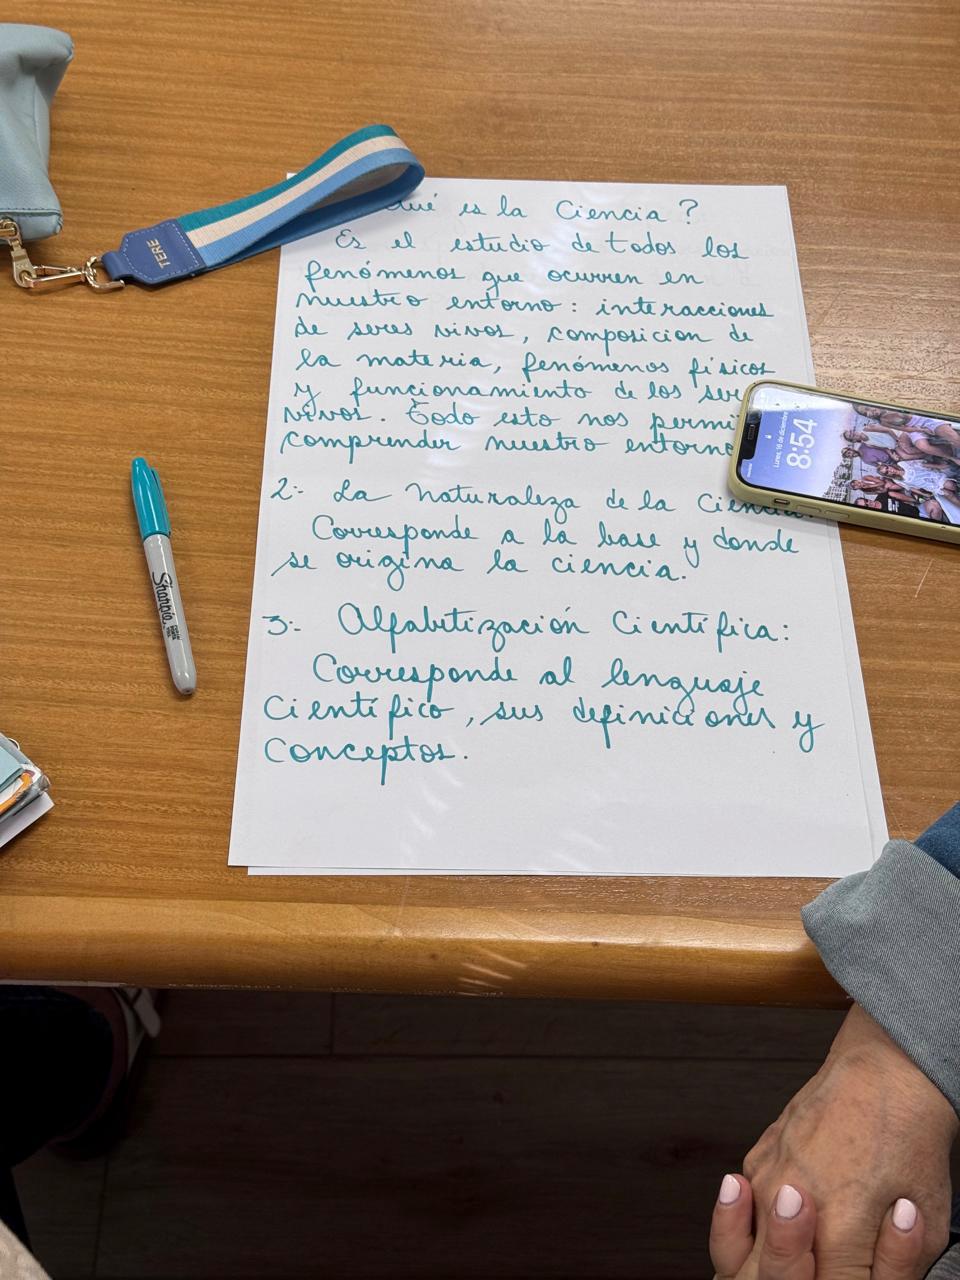 Qué es la Ciencia?
Es el estudio de todos los
fenómenos que ocurren en
nuestro entorno: interacciones
de seres vivos, composicion de
la materia, fenómenos físicos
y funcionamiento de los
vivos. Todo esto nos
comprender nuestro entorno
2.- La Naturaleza de la Ciencia.
Corresponde a la base y donde
se origina la ciencia.
3.- Alfabetización Científica:
Corresponde al lenguaje
Científico, sus definiciones y
conceptos.
TERE
Sharpie
Lunes, 16 de diciembre
8:54